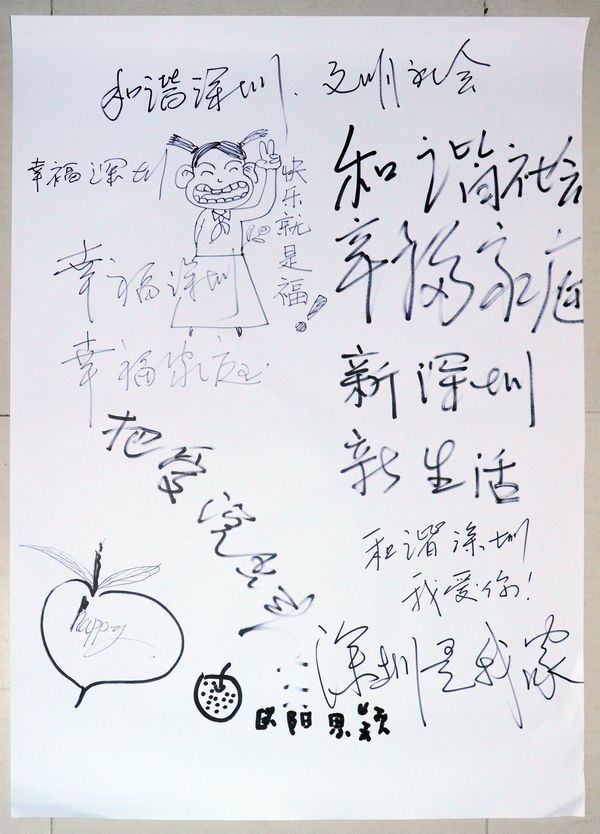 和谐深圳. 文明社会
幸福深圳
快乐就是福!
和谐社会
幸福家庭
幸福深圳
幸福家庭
新深圳
新生活
把爱
和谐深圳
我爱你!
happy
深圳是我家
欧阳思颖